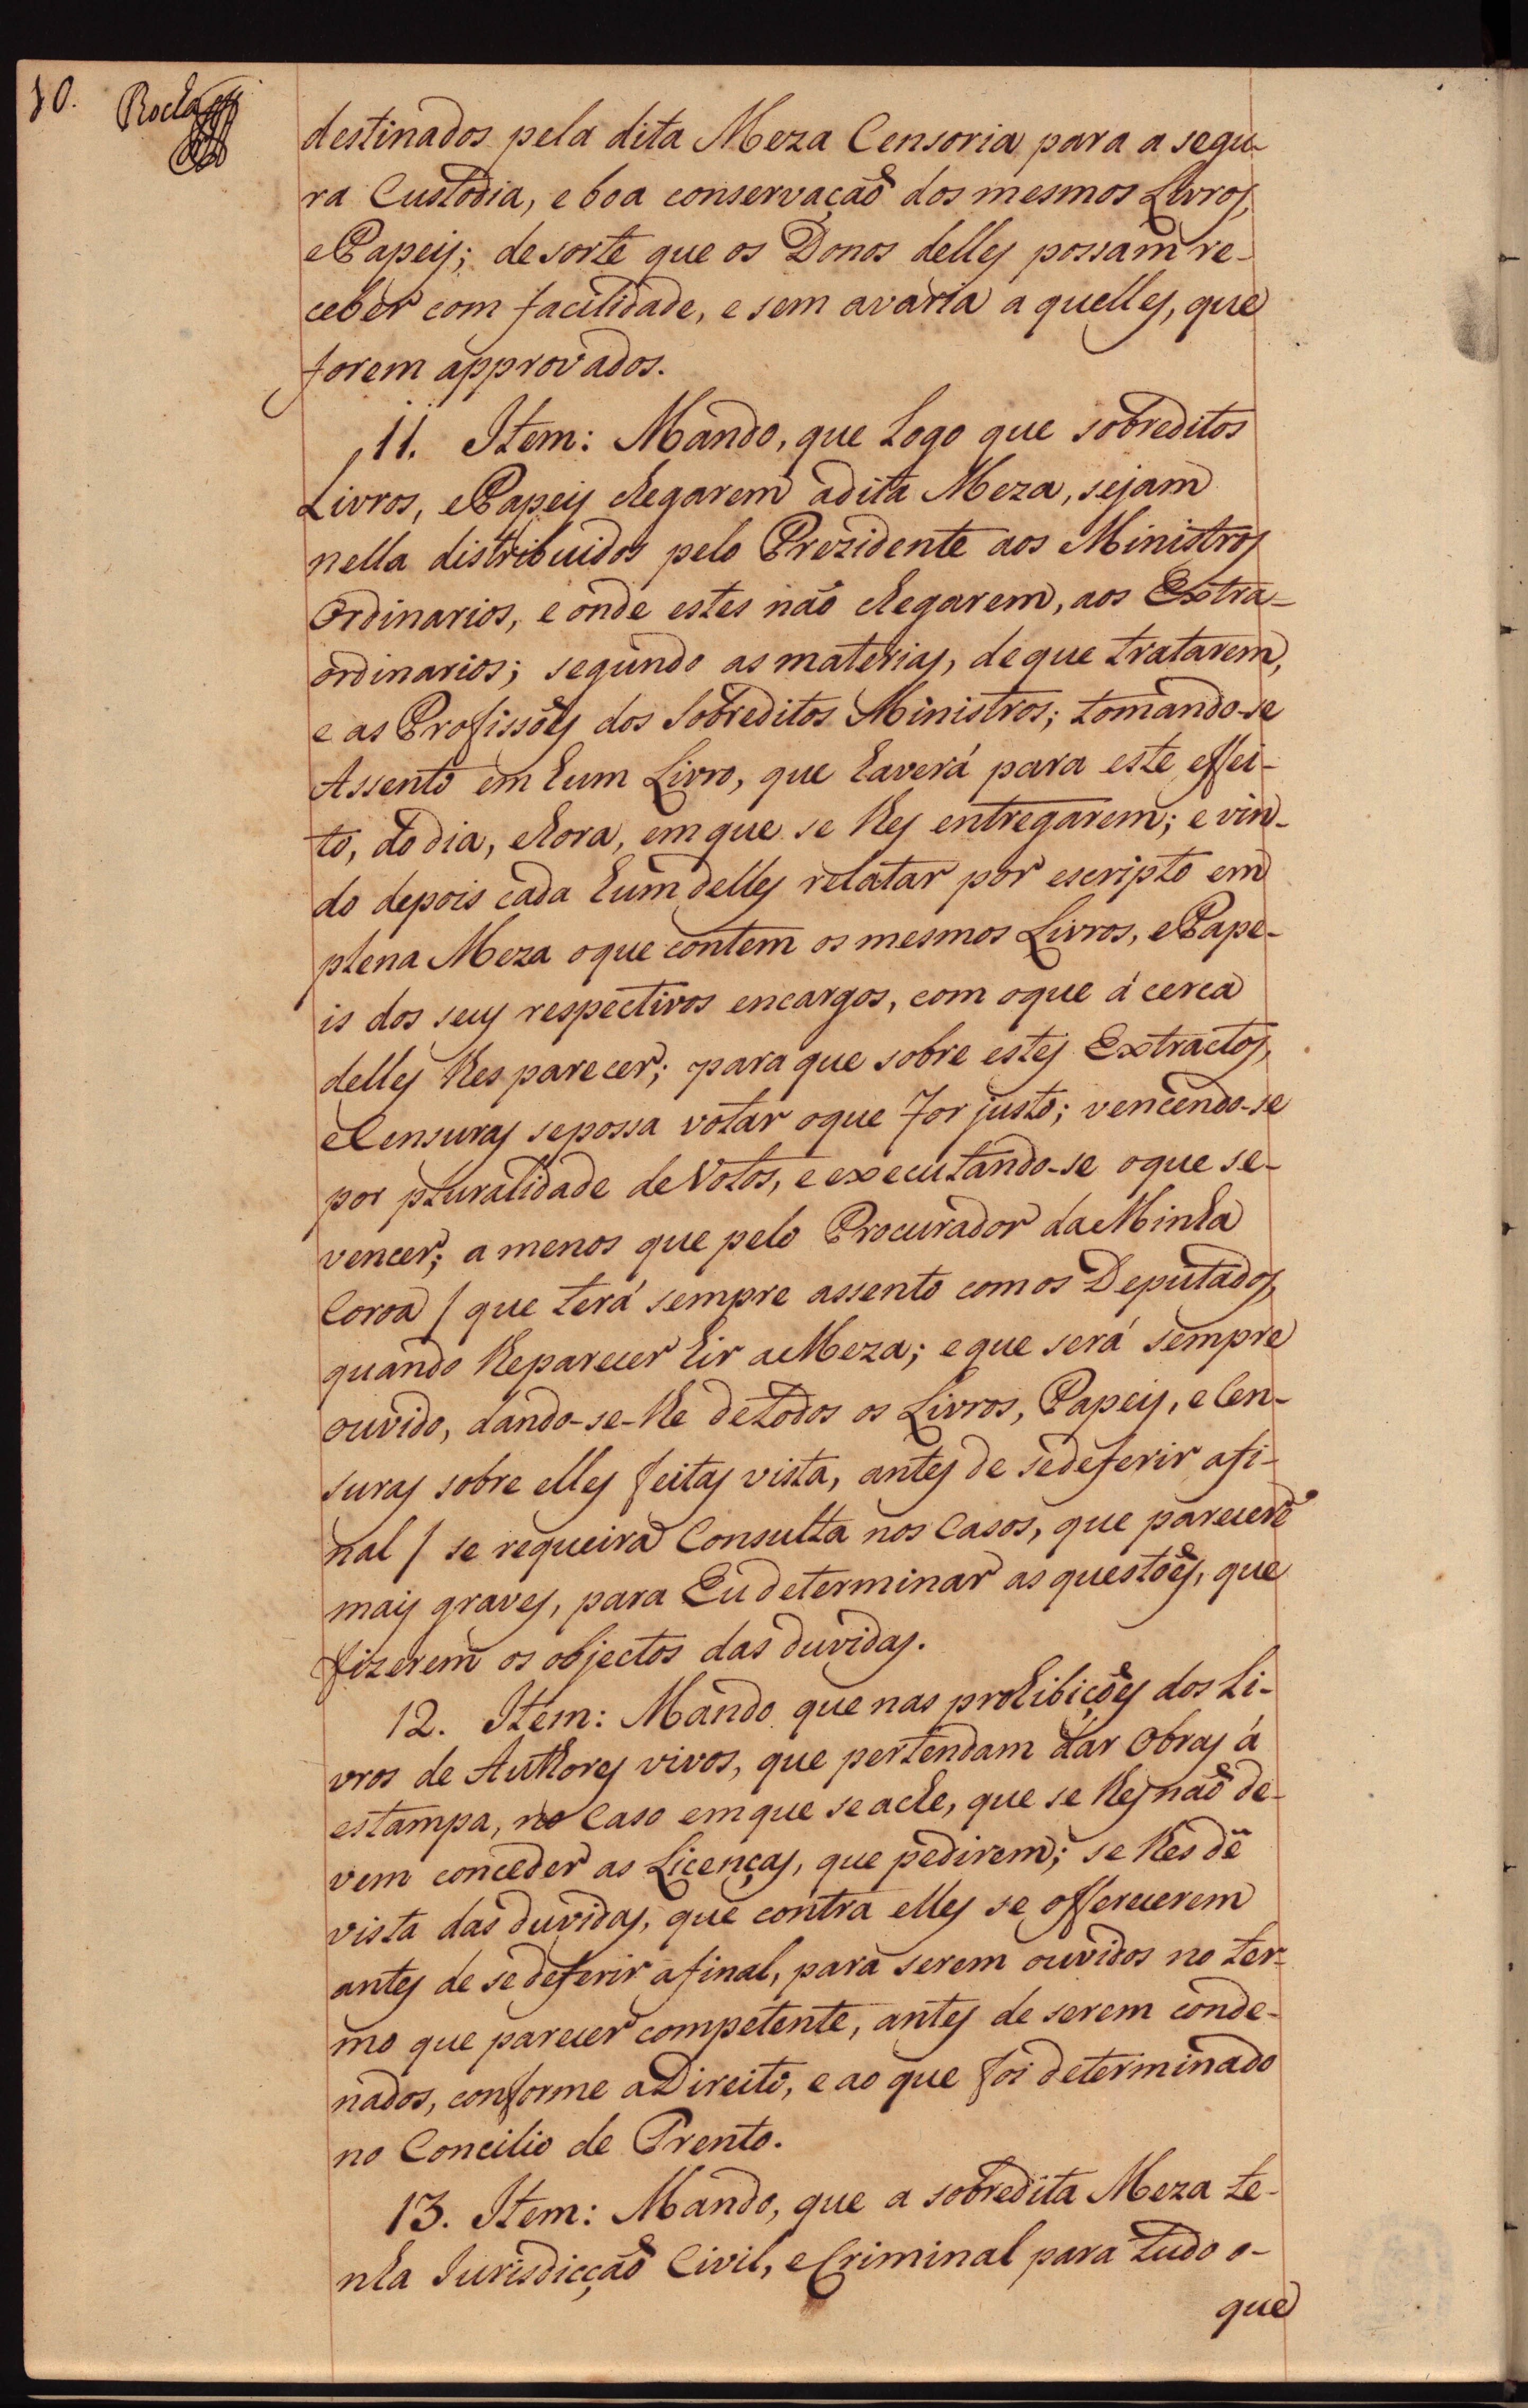 10. Rocha
destinados pela dita Meza Censoria para a segu-
ra Custodia, e boa conservação dos mesmos Livros,
e Papeis; de sorte que os Donos delles possam re-
ceber com facilidade, e sem avaria a quelles, que
forem approvados.
11. Item: Mando, que Logo que sobreditos
Livros, e Papeis chegarem a dita Meza, sejam
nella distribuidos pelo Prezidente aos Ministros
Ordinarios, e onde estes não chegarem, aos Extra-
ordinarios; segundo as materias, de que tratarem,
e as Profissões dos Sobreditos Ministros; tomando-se
Assento em hum Livro, que haverá para este effei-
to, do dia, e hora, em que se lhes entregarem; e vin-
do depois cada hum delles relatar por escripto em
plena Meza o que contem os mesmos Livros, e Pape-
is dos seus respectivos encargos, com o que á cerca
delles lhes parecer; para que sobre estes Extractos,
e Censuras se possa votar o que for justo; vencendo-se
por pluralidade de Votos, e executando-se o que se-
vencer; a menos que pelo Procurador da Minha
Coroa / que terá sempre assento com os Deputados,
quando lhe parecer hir a Meza; e que será sempre
ouvido, dando-se-lhe de todos os Livros, Papeis, e Cen-
suras sobre elles feitas vista, antes de se deferir a fi-
nal / se requeira Consulta nos Casos, que parecerẽ
mais graves, para Eu determinar as questões, que
fizerem os objectos das duvidas.
12. Item: Mando que nas prohibições dos Li-
vros de Authores vivos, que pertendam dar Obras á
estampa, no Caso em que se ache, que se lhes não de-
vem conceder as Licenças, que pedirem; se lhes dê
vista das duvidas, que contra elles se offerecerem
antes de se deferir a final, para serem ouvidos no ter-
mo que parecer competente, antes de serem conde-
nados, conforme a Direito, e ao que foi determinado
no Concilio de Trento.
13. Item: Mando, que a sobredita Meza te-
nha Jurisdicção Civil, e Criminal para tudo o-
que